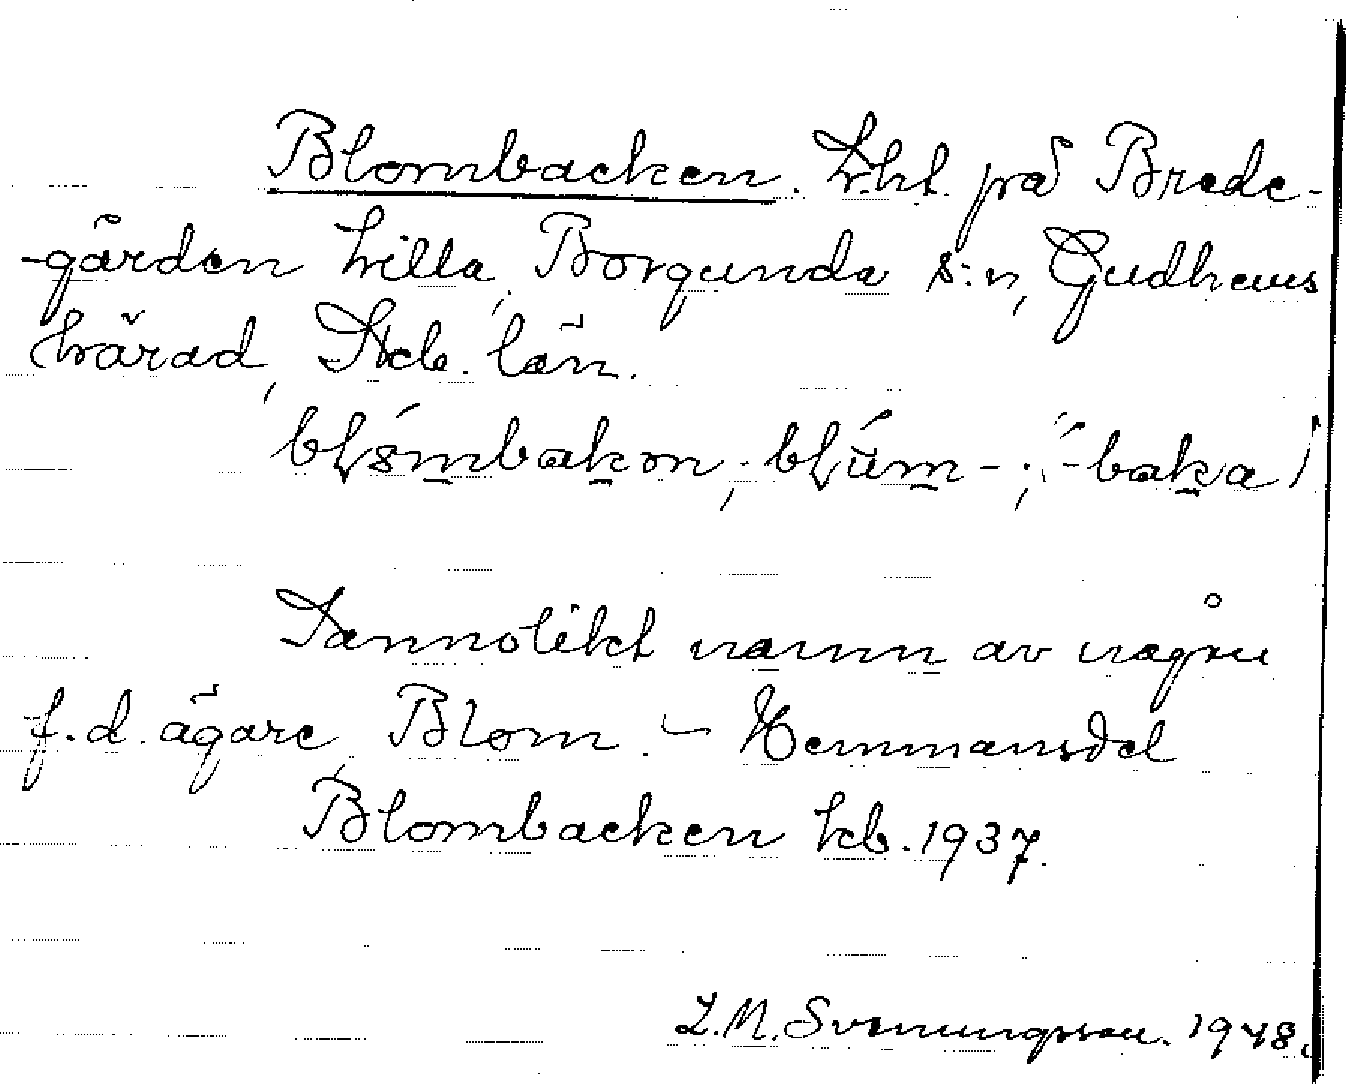 Blombacken. Lht. på Brede-
-gården Lilla, Borgunda s:n, Gudhems
härad, Skb. län.
blʂmbakən; blúm- ; -baka/
Sannolikt namn av någon
f.d. ägare, Blom. – Hemmansdel
Blombacken kb. 1937.
L.M. Svenungsson. 1948.